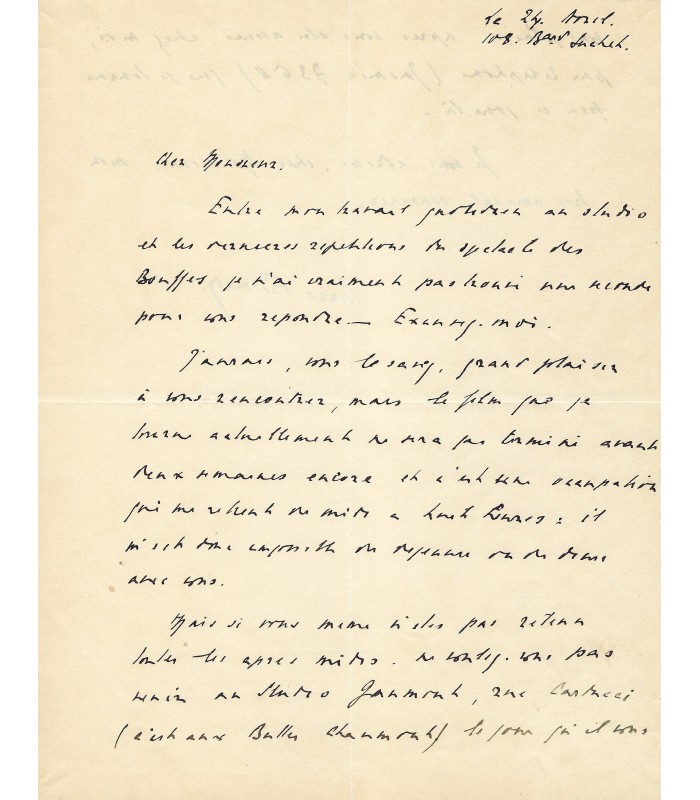 Le 24 Avril.
108. Bard Suchet.
Cher Monsieur.
Entre mon travail quotidien au studio
et les dernieres repetitions du spectacle des
Bouffes je n'ai vraiment pas trouvé une seconde
pour vous repondre — Excusez-moi.
J'aurais, vous le savez, grand plaisir
à vous rencontrer, mais le film que je
tourne actuellement ne sera pas terminé avant
deux semaines encore et c'est une occupation
qui me retient de midi a huit heures : il
m'est donc impossible de dejeuner ou de diner
avec vous.
Mais si vous meme n'etes pas retenu
toutes les apres midis. ne voulez-vous pas
venir au Studio Gaumont, rue Carducci
(c'est aux Buttes Chaumont) le jour qu'il vous